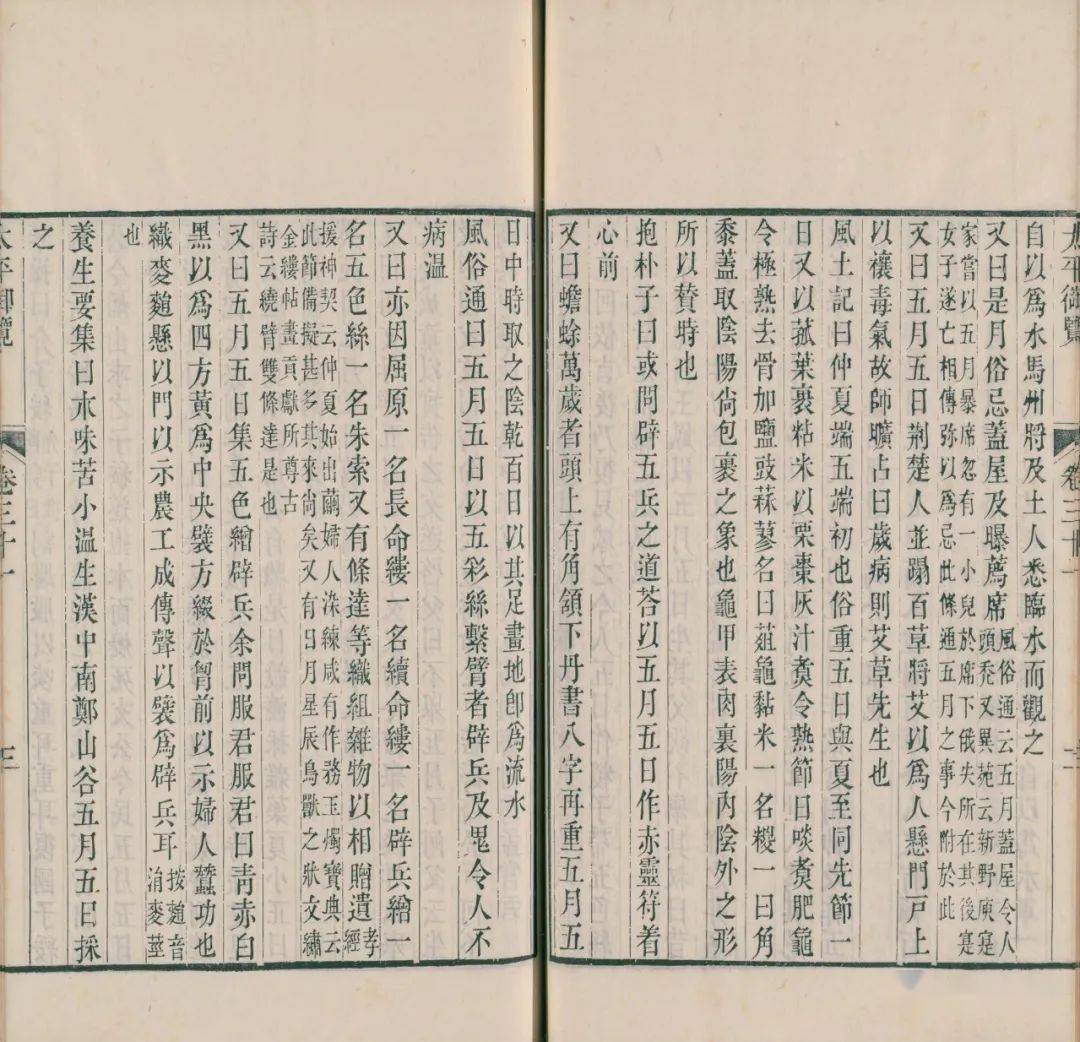 太平御覽 卷三十一 三
自以爲水馬州將及土人悉臨水而觀之
又曰是月俗忌蓋屋及曝薦席
風俗通云五月蓋屋令人
頭禿又異苑云新野庾寔
家嘗以五月暴席忽有一小兒於席下俄失所在其後寔
女子遂亡相傳弥以爲忌此條通五月之事今附於此
又曰五月五日荆楚人並蹋百草將艾以爲人懸門戸上
以禳毒氣故師曠占曰歲病則艾草先生也
風土記曰仲夏端五端初也俗重五日與夏至同先節一
日又以菰葉裹粘米以栗棗灰汁煑令熟節日啖煑肥龜
令極熟去骨加鹽豉蒜蓼名曰葅龜黏米一名糉一曰角
黍蓋取陰陽尚包裹之象也龜甲表肉裏陽内陰外之形
所以贊時也
抱朴子曰或問辟五兵之道荅以五月五日作赤靈符着
心前
又曰蟾蜍萬歲者頭上有角頷下丹書八字再重五月五
日中時取之陰乾百日以其足畫地卽爲流水
風俗通曰五月五日以五彩絲繫臂者辟兵及鬼令人不
病温
又曰亦因屈原一名長命縷一名續命縷一名辟兵繒一
名五色絲一名朱索又有條達等織組雜物以相贈遺
孝經
援神契云仲夏始出繭婦人染練咸有作務玉燭寶典云
此節備擬甚多其來尚矣又有日月星辰鳥獸之狀文繡
金縷帖畫貢獻所尊古
詩云繞臂雙條達是也
又曰五月五日集五色繒辟兵余問服君服君曰青赤白
黑以爲四方黄爲中央襞方綴於胷前以示婦人蠶功也
織麥䅌懸以門以示農工成傳聲以襞爲辟兵耳
按䅌音
涓麥莖
也
養生要集曰朮味苦小温生漢中南鄭山谷五月五日採
之
太平御覽 卷三十一 三